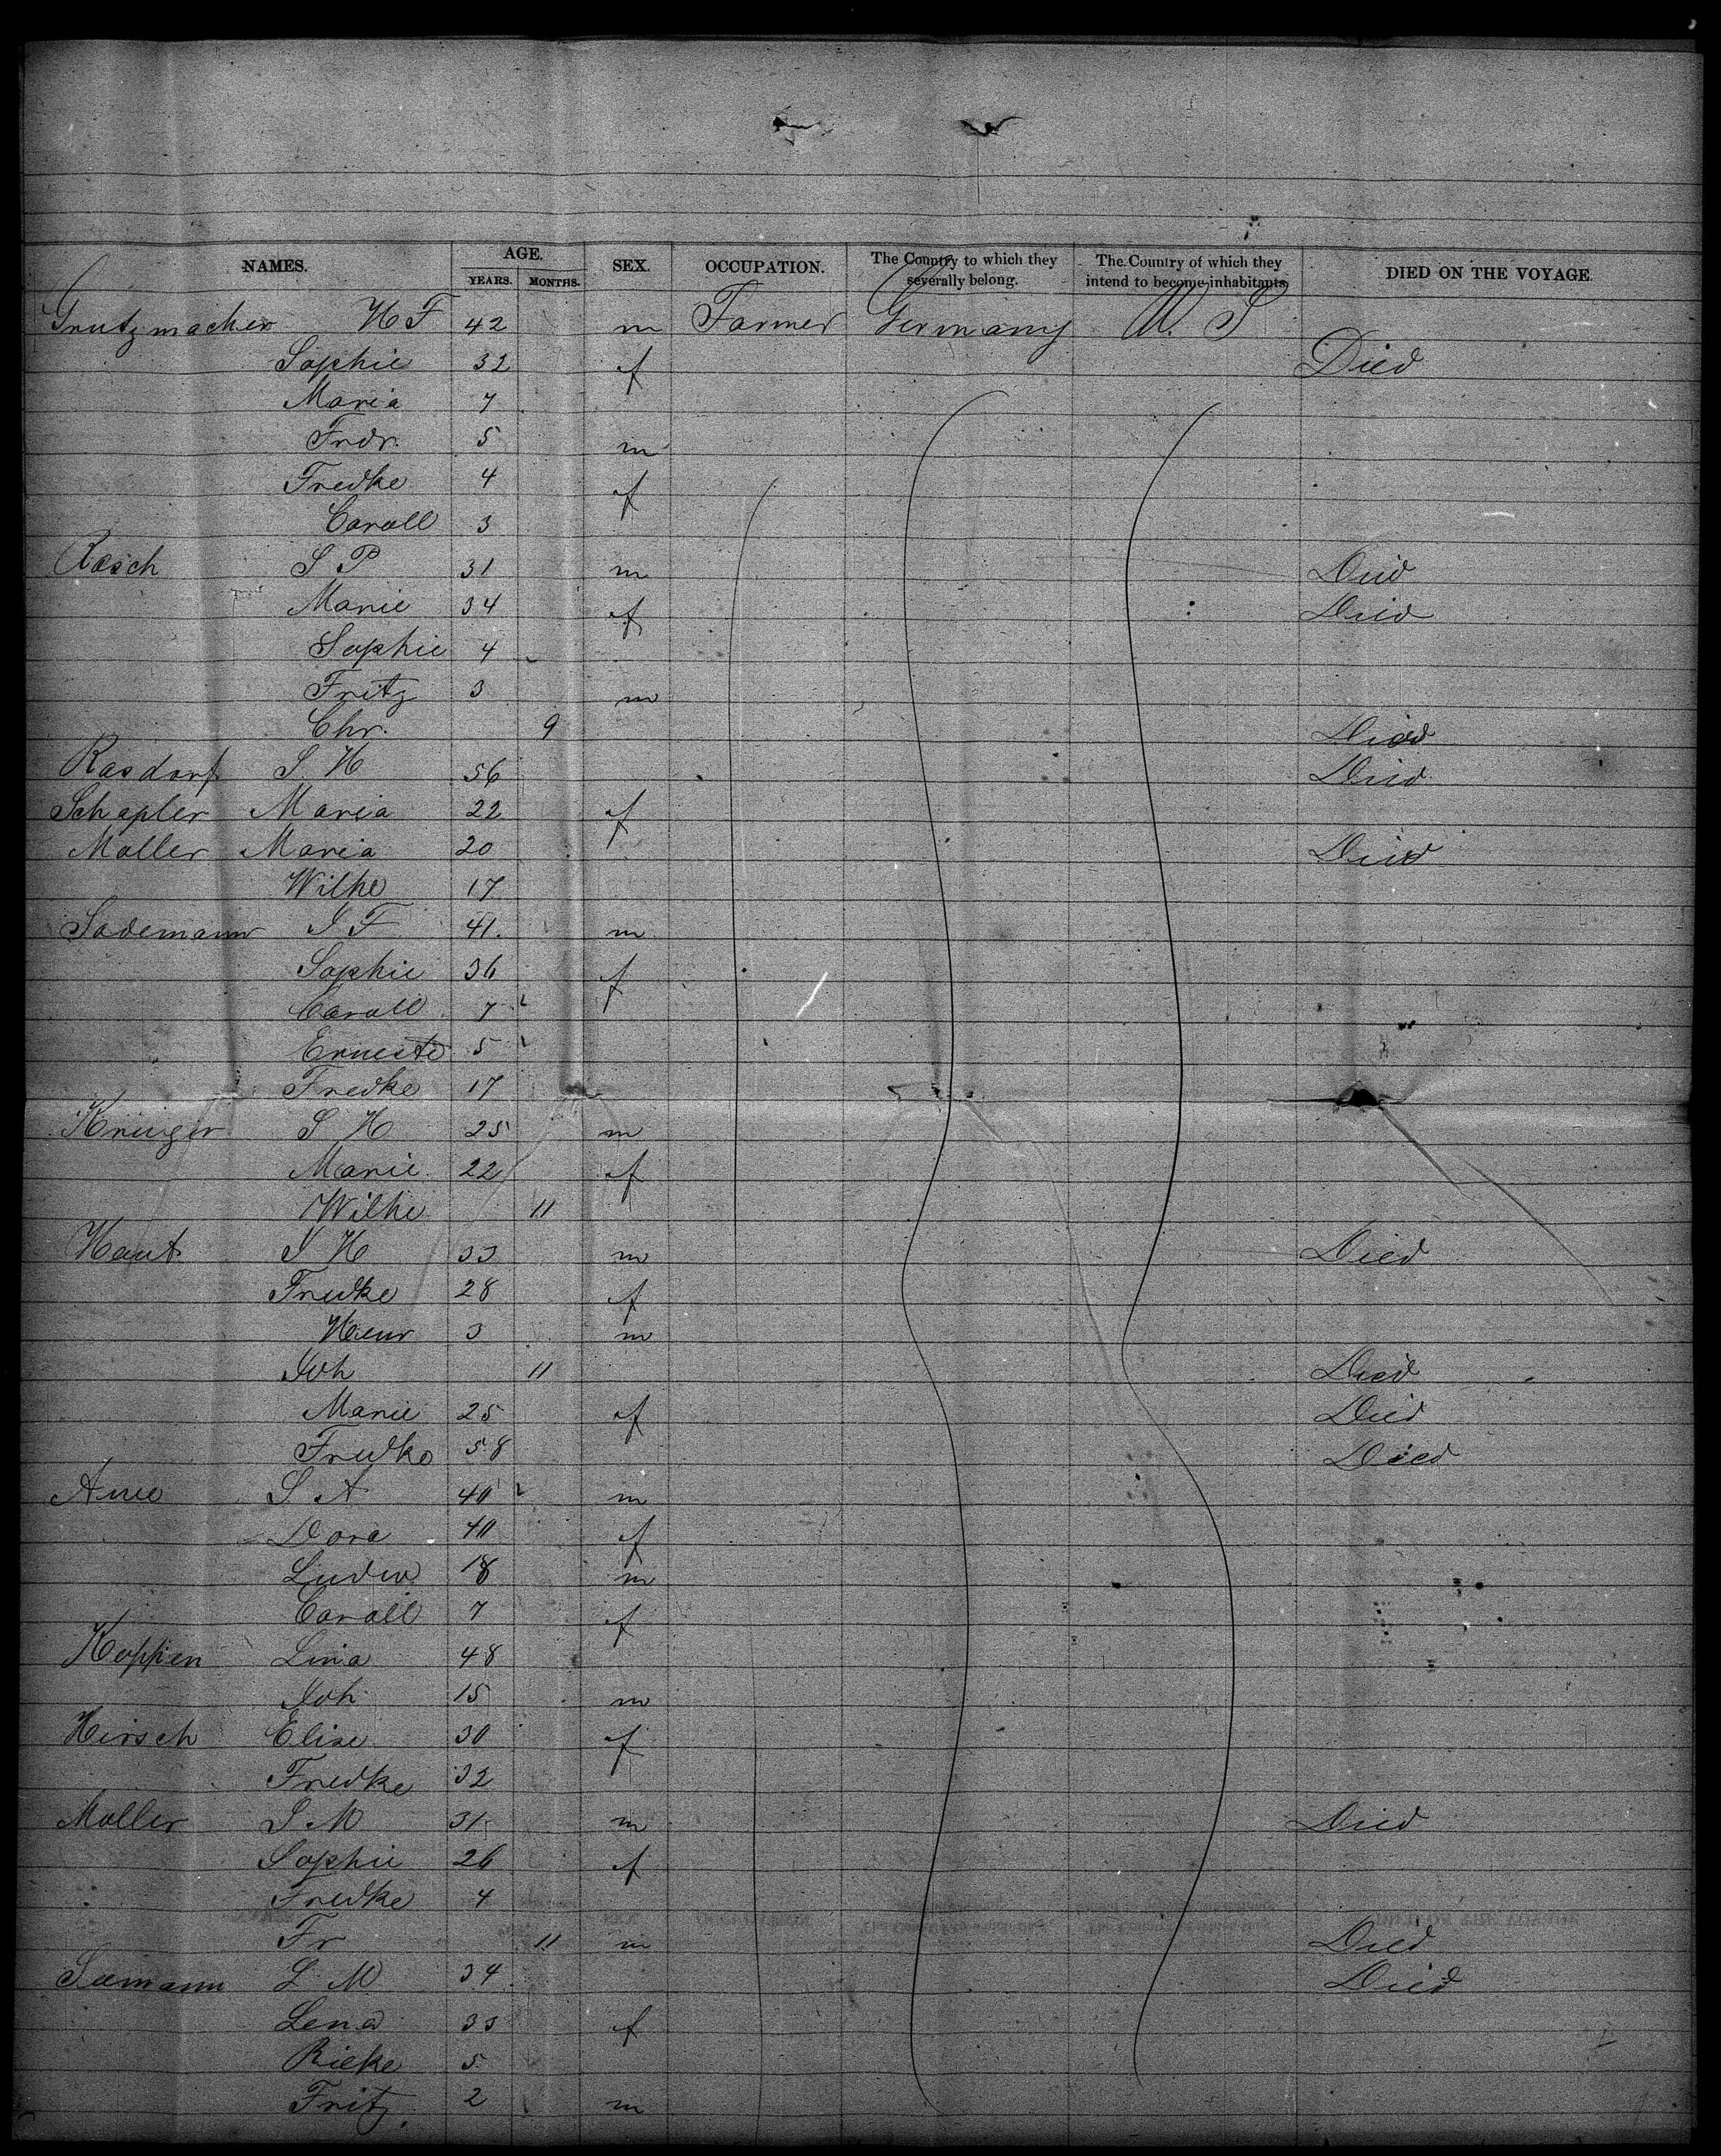 NAMES. AGE. SEX. OCCUPATION. The Country to which they severally belong. The Country of which they intend to become inhabitants. DIED ON THE VOYAGE.
YEARS. MONTHS.
Grutzmacher H F 42 m Farmer Germany U. S
Sophie 32 f Died
Maria 7
Frdr. 5 m
Fredke 4 f
Caroll 3
Rasch S P 31 m Died
Marie 34 f Died
Sophie 4
Fritz 3 m
Chr. 9 Died
Rasdorf S H 56 Died
Schapler Maria 22 f
Moller Maria 20 Died
Wilhe 17
Sademann J F 41. m
Sophie 36 f
Caroll 7
Erneste 5
Fredke 17
Kruger S H 25 m
Marie 22 f
Wilhe 11
Haut J H 33 m Died
Fredke 28 f
Heinr 3 m
Joh 11 Died
Marie 25 f Died
Fredke 58 Died
S A 40 m
Dora 40 f
Ludw 18 m
Caroll 7 f
Koppen Lina 48
Joh 15 m
Hirsch Elise 30 f
Fredke 32
Moller J M 31 m Died
Sophie 26 f
Fredke 4
Fr 11 m Died
Seemann L M 34 Died
Lena 33 f
Rieke 5
Fritz 2 m